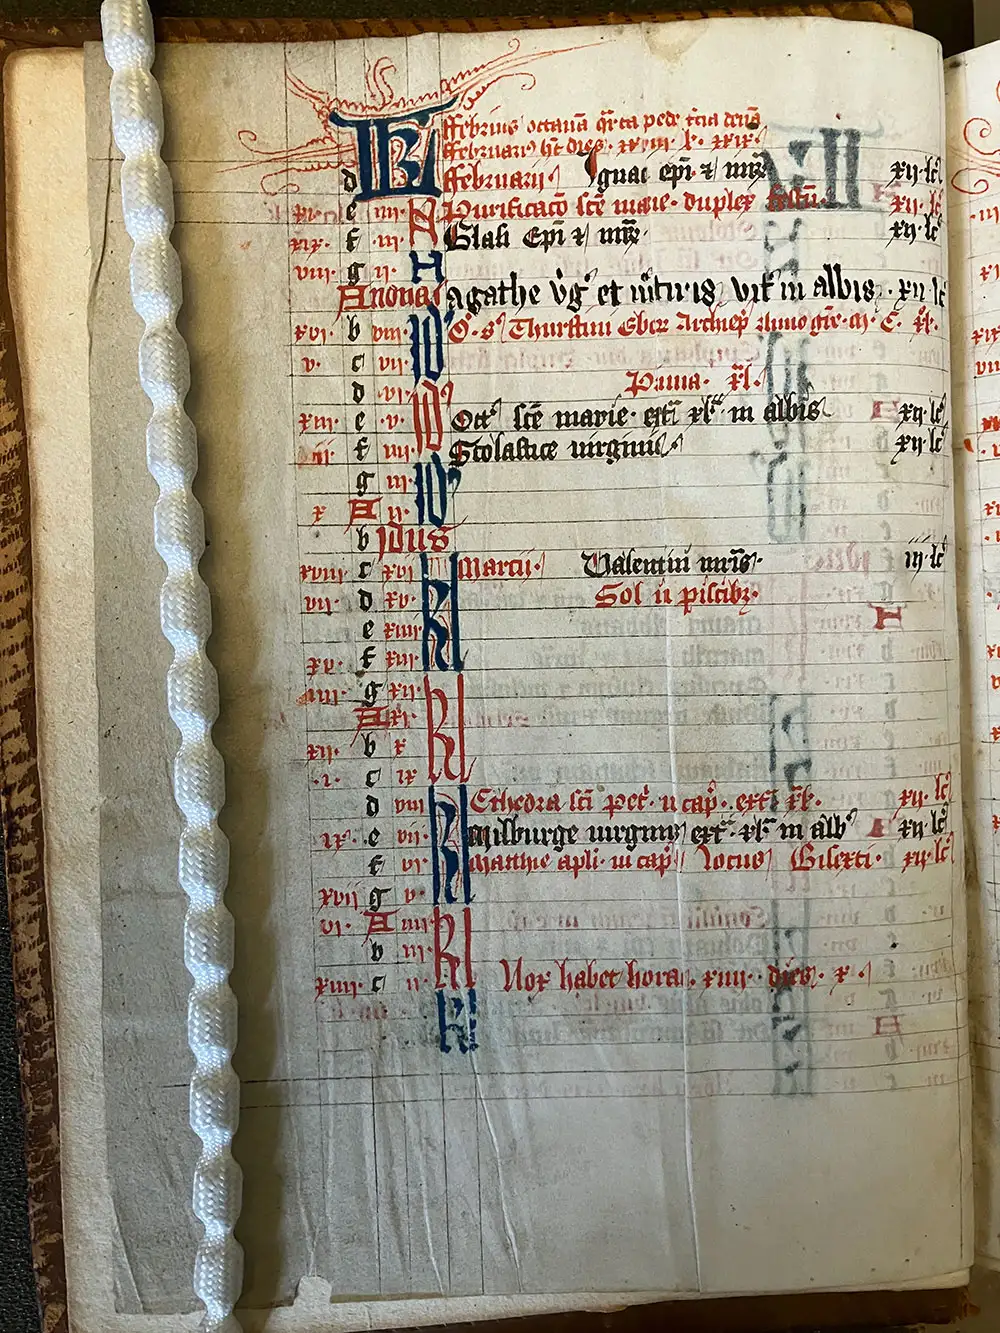 KL ffebrius octauã q̃rta pede t̃cia
ffebruari⁹ ht dies xxviii l xxix
d ffebruarii Ignac epi ⁊ mr̃ xij lc̃
xi e iiii N Purificacõ scẽ marie duplex festũ xij lc̃
xix f iii Blasii Epi ⁊ mr̃ xij lc̃
viii g ii N
A nonas Agathe v̓g̓ et mr̃tiris in albis xij lc̃
xvi b viii Id⁹ O s̓ Thurstini Ebor Archiep̃
v c vii
d vi Id⁹ Prima xl
xiii e v Oct̃ scẽ marie ext̃ xl̃ in albis xij lc̃
ii f iiii Scolastice uirginis xij lc̃
g iii Id⁹
x A ii
b Idus
xviii c xvi Kl Marcii Valentini mr̃is iij lc̃
vii d xv Sol in piscibʒ
e xiiii
xv f xiii
iiii g xii Kl
A xi
xii b x
i c ix
d viii Kl Cthedra sc̃i pet̃ in cap̃ ext̃ xl̃ xij lc̃
ix e vii Milburge uirginis ext̃ xl̃ in alb̓ xij lc̃
f vi Mathie apl̃i in cap̃ locus Bisexti xij lc̃
xvii g v
vi A iiii Kl
b iii
xiiii c ii Nox habet horas xiiii dies x
kl